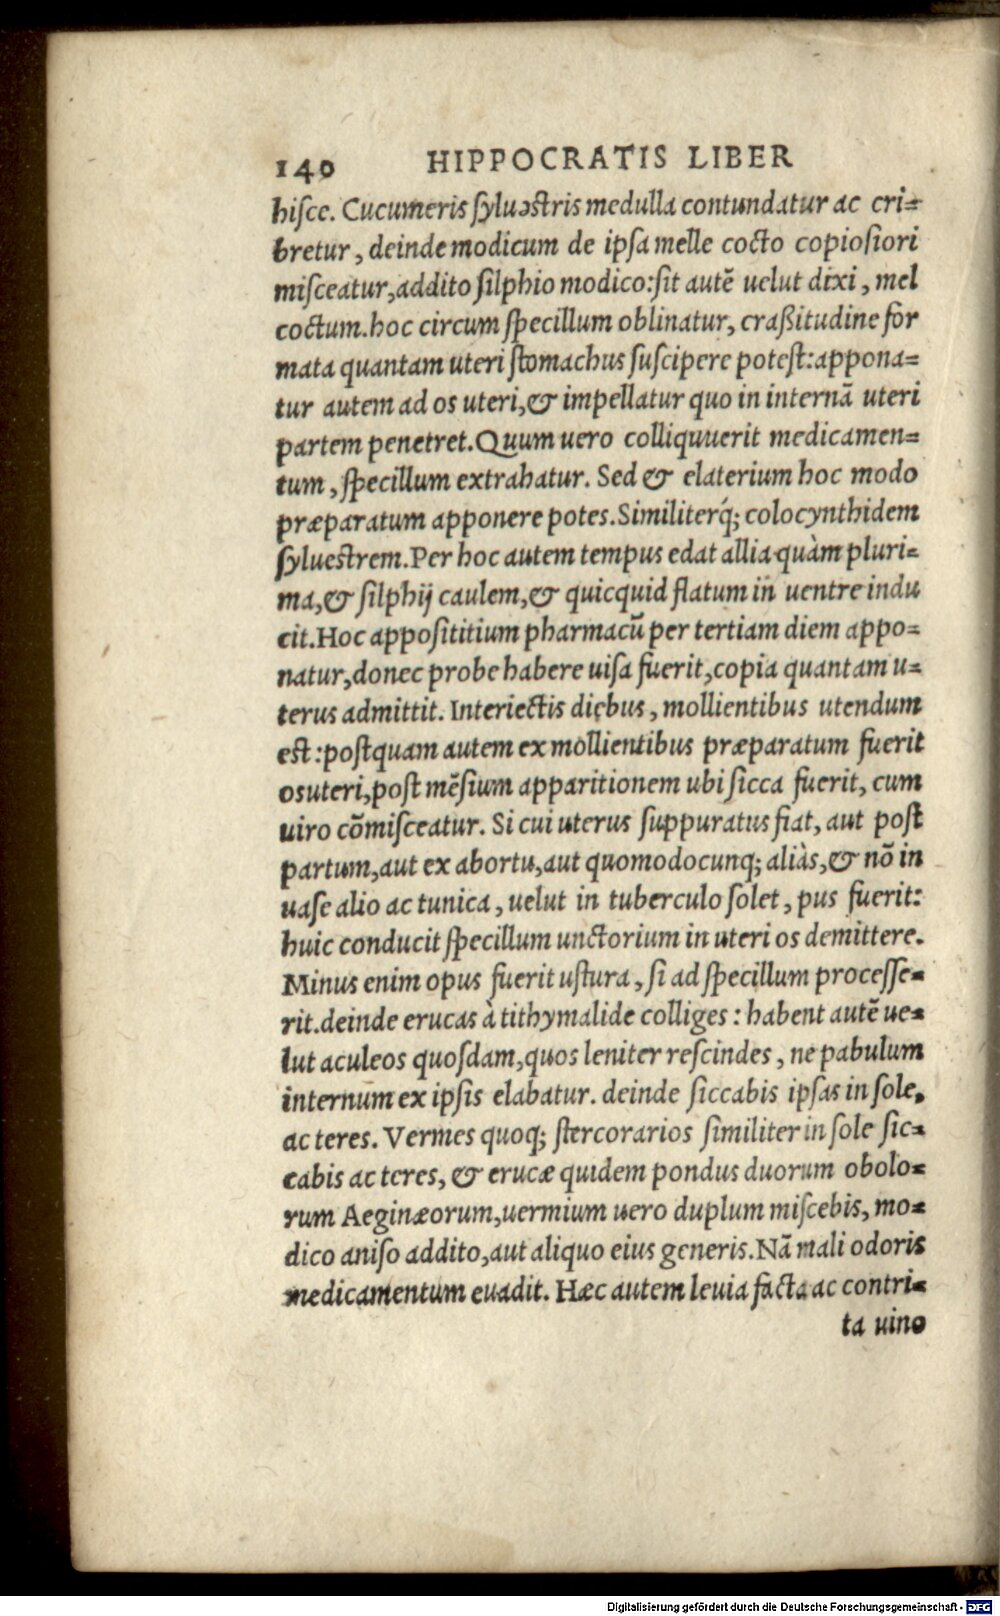 140 HIPPOCRATIS LIBER
hisce. Cucumeris syluestris medulla contundatur ac cri=
bretur, deinde modicum de ipsa melle cocto copiosiori
misceatur, addito silphio modico: sit autẽ uelut dixi, mel
coctum. hoc circum specillum oblinatur, craßitudine for
mata quantam uteri stomachus suscipere potest: appona=
tur autem ad os uteri, & impellatur quo in internã uteri
partem penetret. Quum uero colliquuerit medicamen=
tum, specillum extrahatur. Sed & elaterium hoc modo
præparatum apponere potes. Similiterq́; colocynthidem
syluestrem. Per hoc autem tempus edat allia quàm pluri=
ma, & silphij caulem, & quicquid flatum in uentre indu
cit. Hoc appositium pharmacũ per tertiam diem appo=
natur, donec probe habere uisa fuerit, copia quantam u=
terus admittit. Interiectis diebus, mollientibus utendum
est: postquam autem ex mollientibus præparatum fuerit
os uteri, post mẽsium apparitionem ubi sicca fuerit, cum
uiro cõmisceatur. Si cui uterus suppuratus fiat, aut post
partum, aut ex abortu, aut quomodocunq; aliàs, & nõ in
uase alio ac tunica, uelut in tuberculo solet, pus fuerit:
huic conducit specillum unctorium in uteri os demittere.
Minus enim opus fuerit ustura, si ad specillum processe=
rit. deinde erucas à tithymalide colliges: habent autẽ ue=
lut aculeos quosdam, quos leniter rescindes, ne pabulum
internum ex ipsis elabatur. deinde siccabis ipsas in sole,
ac teres. Vermes quoq; stercorarios similiter in sole sic=
cabis ac teres, & erucæ quidem pondus duorum obolo=
rum Aeginæorum, uermium uero duplum miscebis, mo=
dico aniso addito, aut aliquo eius generis. Nã mali odoris
medicamentum euadit. Hæc autem leuia facta ac contri=
ta uino
Digitalisierung gefördert durch die Deutsche Forschungsgemeinschaft - DFG